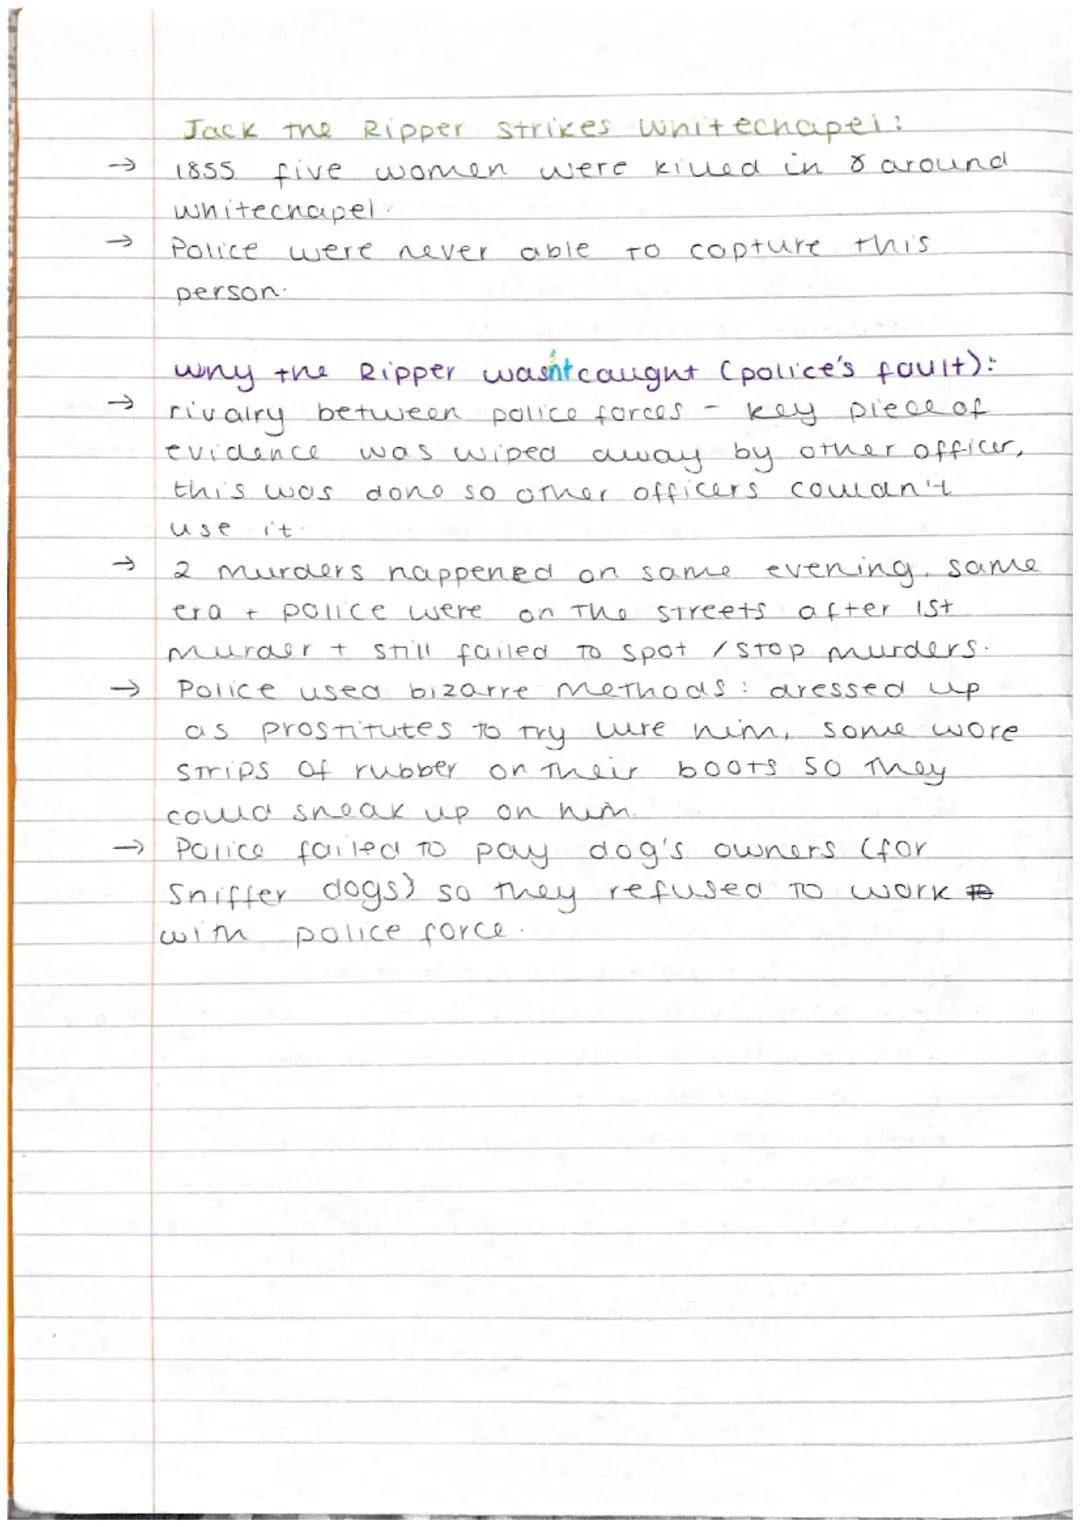 Jack the Ripper strikes Whitechapel:
→ 1855 five women were killed in & around
Whitechapel.
→ Police were never able to capture this
person.
Why the Ripper wasn't caught (police's fault):
→ rivalry between police forces - key piece of
evidence was wiped away by other officer,
this was done so other officers couldn't
use it.
→ 2 murders happened on same evening, same
era + police were on the streets after 1st
murder + still failed to spot / stop murders.
→ Police used bizarre methods: dressed up
as prostitutes to try lure him, some wore
strips of rubber on their boots so they
could sneak up on him.
→ Police failed to pay dog's owners (for
sniffer dogs) so they refused to work to
with police force.